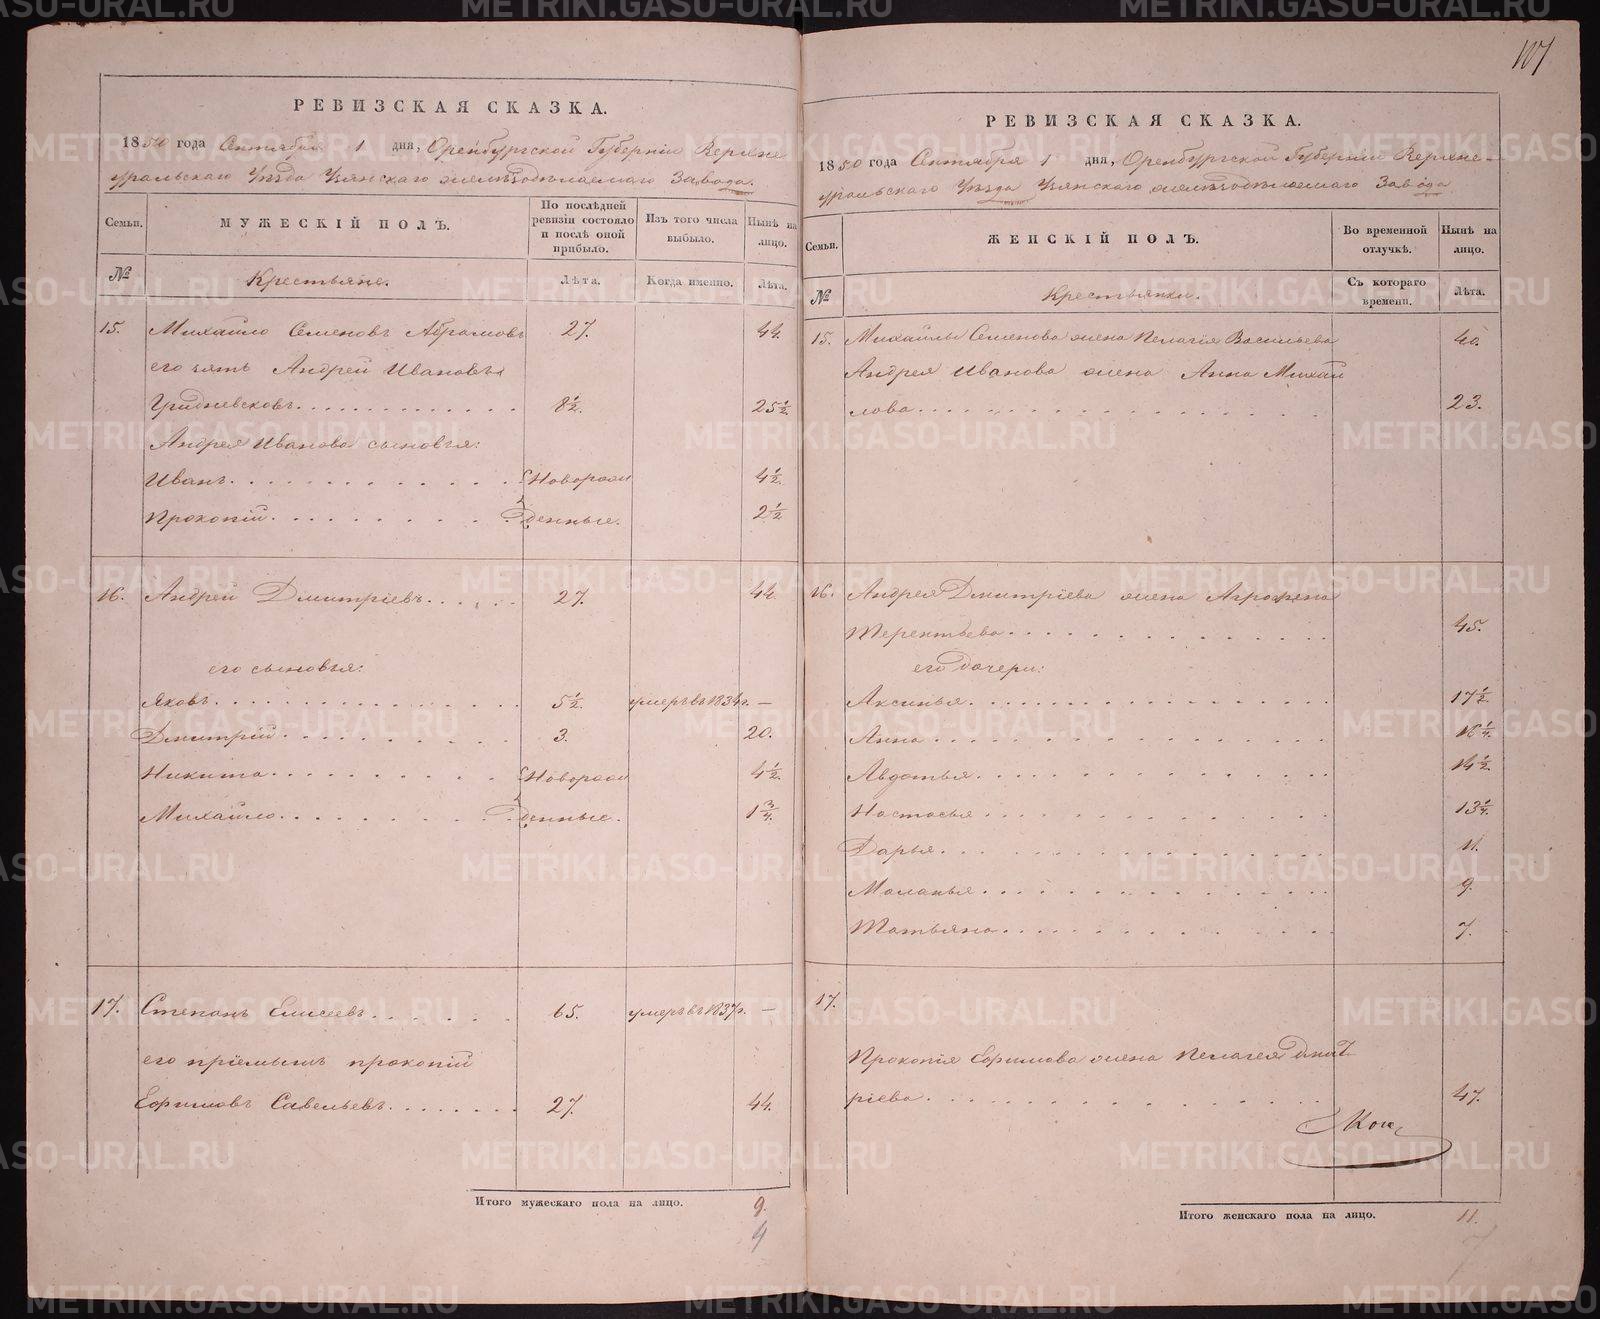 107
РЕВИЗСКАЯ СКАЗКА.
1850 года Октября 1 дня, Оренбургской Губерніи Верхне
уральскаго Уѣзда Узянскаго желѣзодѣлаемаго Завода.
Семьи.
МУЖЕСКІЙ ПОЛЪ.
По послѣдней ревизіи состояло и послѣ оной прибыло.
Изъ того числа выбыло.
Нынѣ на лицо.
№
Крестьяне.
Лѣта.
Когда именно.
Лѣта.
15. Михайло Семеновъ Абрамовъ 27. 44.
его зять Андрей Ивановъ
Гридневсковъ 8½. 25½.
Андрея Иванова сыновья:
Иванъ Новорож 4½.
Прокопій денные. 2½.
16. Андрей Дмитріевъ 27. 44.
его сыновья:
Яковъ 5½. умеръ въ 1834 г. —
Дмитрій 3. 20.
Никита Новорож 4½.
Михайло денные. 1¾.
17. Степанъ Елисеевъ 65. умеръ въ 1837 г. —
его пріемышъ прокопій
Ефимовъ Савельевъ 27. 44.
Итого мужескаго пола на лицо. 9.
9
РЕВИЗСКАЯ СКАЗКА.
1850 года Октября 1 дня, Оренбургской Губерніи Верхне-
уральскаго Уѣзда Узянскаго желѣзодѣлаемаго Завода
Семьи.
ЖЕНСКІЙ ПОЛЪ.
Во временной отлучкѣ.
Нынѣ на лицо.
№
Крестьянки.
Съ котораго времени.
Лѣта.
15. Михайлы Семенова жена Пелагія Васильева 40.
Андрея Иванова жена Анна Михай
лова 23.
16. Андрея Дмитріева жена Аграфена
Терентьева 45.
его дочери:
Аксинья 17½.
Анна 16¼.
Авдотья 14½.
Настасья 13¼.
Дарья 11.
Маланья 9.
Татьяна 7.
17.
Прокопія Ефимова жена Пелагея Дмит
ріева 47.
Итого женскаго пола на лицо. 11.
7
METRIKI.GASO-URAL.RU